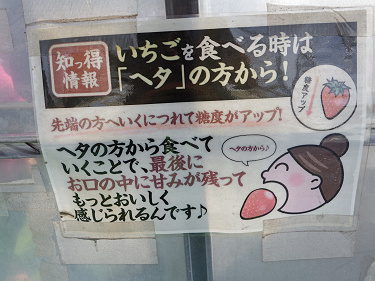 知っ得
情報
いちごを食べる時は
「ヘタ」の方から!
糖度アップ
先端の方へいくにつれて糖度がアップ!
ヘタの方から食べて
いくことで、最後に
お口の中に甘みが残って
もっとおいしく
感じられるんです♪
ヘタの方から♪